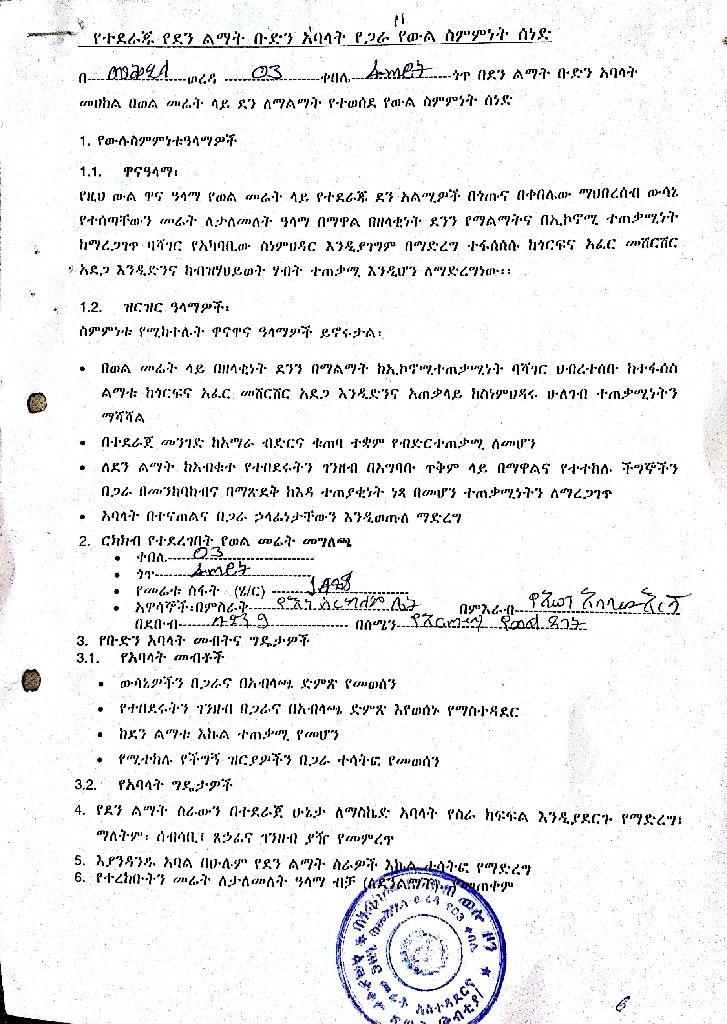 የተደራጁ የደን ልማት ቡድን አባላት የጋራ የውል ስምምነት ሰነድ
በ ወረዳ 03 ቀበሌ ጎጥ በደን ልማት ቡድን አባላት
መሀከል በወል መሬት ላይ ደን ለማልማት የተወሰደ የውል ስምምነት ሰነድ
1. የውሉስምምነቱዓላማዎች
1.1. ዋናዓላማ፡
የዚህ ውል ዋና ዓላማ የወል መሬት ላይ የተደራጁ ደን አልሚዎች በጎጡና በቀበሌው ማህበረሰብ ውሳኔ
የተሰጣቸውን መሬት ለታለመለት ዓላማ በማዋል በዘላቂነት ደንን የማልማትና በኢኮኖሚ ተጠቃሚነት
ከማረጋገጥ ባሻገር የአካባቢው ስነምህዳር እንዲያገግም በማድረግ ተፋሰስሱ ከጎርፍና አፈር መሸርሸር
አደጋ እንዲድንና ከብዝሃህይወት ሃብት ተጠቃሚ እንዲሆን ለማድረግነው፡፡
1.2. ዝርዝር ዓላማዎች፡
ስምምነቱ የሚከተሉት ዋናዋና ዓላማዎች ይኖሩታል፡
• በወል መሬት ላይ በዘላቂነት ደንን በማልማት ከኢኮኖሚተጠቃሚነት ባሻገር ህብረተሰቡ ከተፋሰስ
ልማቱ ከጎርፍና አፈር መሸርሸር አደጋ እንዲድንና አጠቃላይ ከስነምህዳሩ ሁለገብ ተጠቃሚነትን
ማሻሻል
• በተደራጀ መንገድ ከአማራ ብድርና ቁጠባ ተቋም የብድርተጠቃሚ ለመሆን
• ለደን ልማት ከአብቁተ የተበደሩትን ገንዘብ በአግባቡ ጥቅም ላይ በማዋልና የተተከሉ ችግኞችን
በጋራ በመንከባከብና በማጽደቅ ከእዳ ተጠያቂነት ነጻ በመሆን ተጠቃሚነትን ለማረጋገጥ
• አባላት በተናጠልና በጋራ ኃላፊነታቸውን እንዲወጡለ ማድረግ
2. ርክክብ የተደረገበት የወል መሬት መግለጫ
• ቀበሌ 03
• ጎጥ
• የመሬቱ ስፋት (ሄ/ር)
• አዋሳኞች፡በምስራት በምእራብ
በደቡብ በሰሜን
3. የቡድን አባላት መብትና ግዴታዎች
3.1. የአባላት መብቶች
• ውሳኔዎችን በጋራና በአብላጫ ድምጽ የመወሰን
• የተበደሩትን ገንዘብ በጋራና በአብላጫ ድምጽ እየወሰኑ የማስተዳደር
• ከደን ልማቱ እኩል ተጠቃሚ የመሆን
• የሚተከሉ የችግኝ ዝርያዎችን በጋራ ተሳትፎ የመወሰን
3.2. የአባላት ግዴታዎች
4. የደን ልማት ስራውን በተደራጀ ሁኔታ ለማስኬድ አባላት የስራ ክፍፍል እንዲያደርጉ የማድረግ፤
ማለትም፡ ሰብሳቢ፣ ጸኃፊና ገንዘብ ያዥ የመምረጥ
5. እያንዳንዱ አባል በሁሉም የደን ልማት ስራዎች እኩል ተሳትፎ የማድረግ
6. የተረከቡትን መሬት ለታለመለት ዓላማ ብቻ (ለደንልማት) የመጠቀም
6